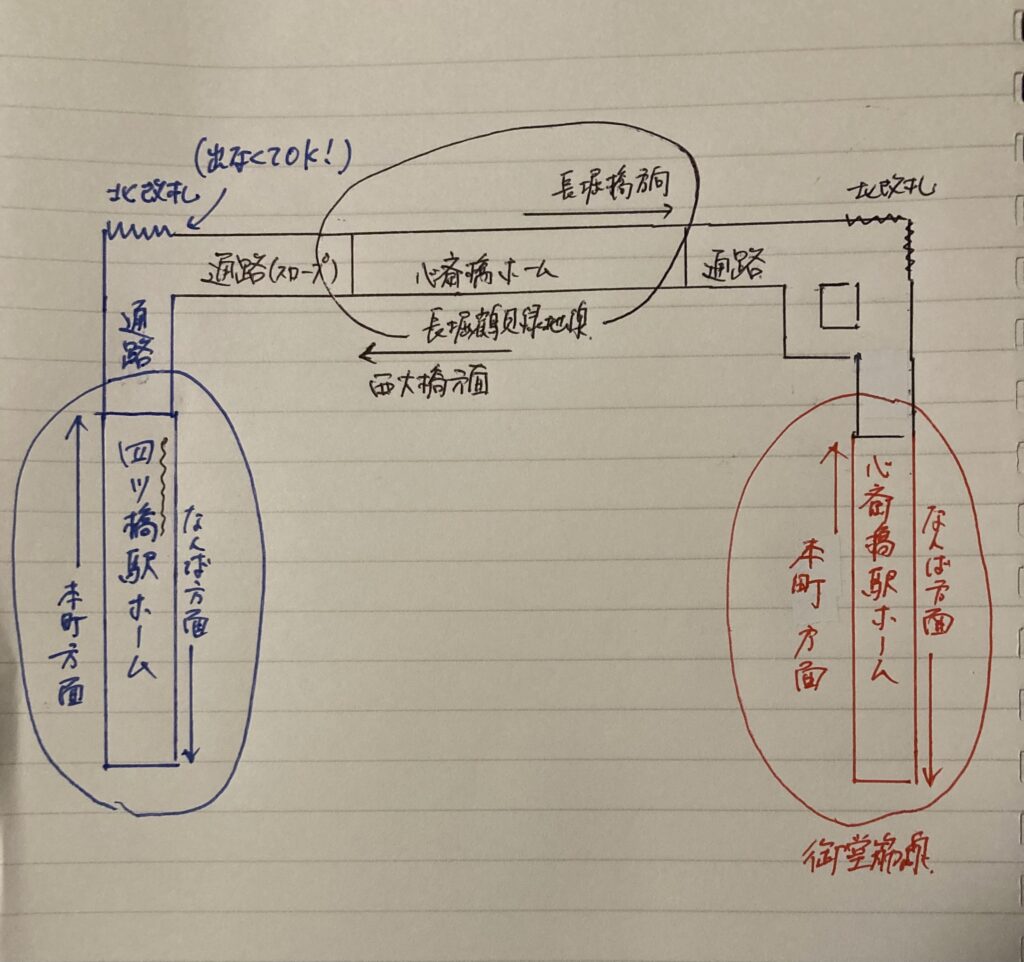 (出なくてOK!)
北改札
長堀橋方向
北改札
通路(スロープ)
心斎橋ホーム
通路
長堀鶴見緑地線
西大橋方面
通路
四ツ橋駅ホーム
本町方面
なんば方面
心斎橋駅ホーム
本町方面
なんば方面
御堂筋線